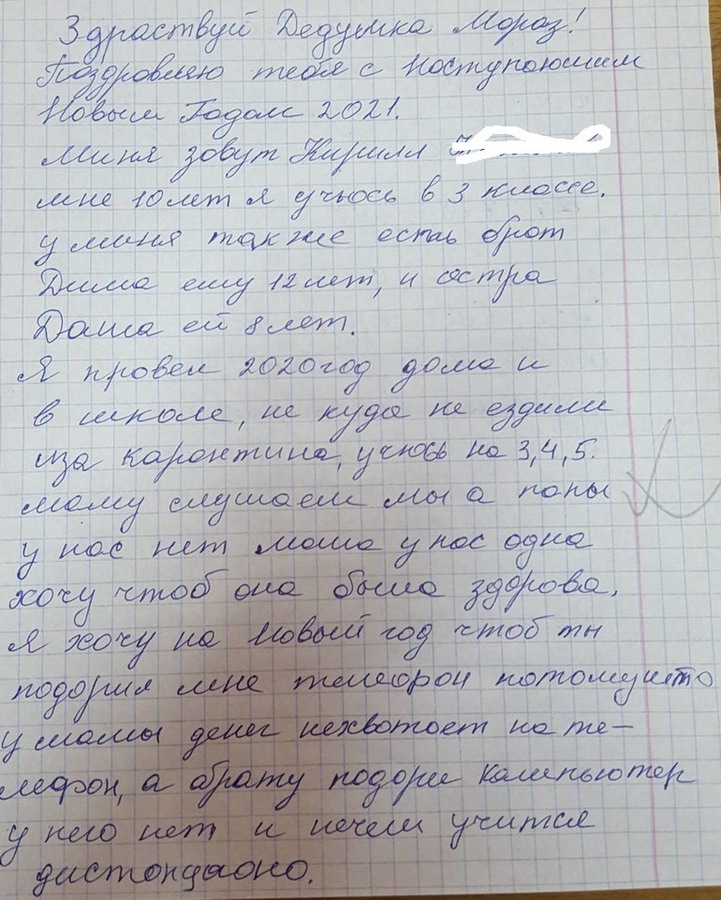 Здраствуй Дедушка Мораз!
Поздровляю тебя с Ноступоюшим
Новым Годом 2021.
Миня зовут Кирилл
мне 10 лет я учюсь в 3 классе.
у миня также есть брот
Дима ему 12 лет, и состра
Даша ей 8 лет.
Я провел 2020 год дома и
в школе, не куда не ездили
иза каронтина, учюсь на 3,4,5.
маму слушаем мы а папы
у нас нет мама у нас одна
хочу чтоб она была здорова.
Я хочу на Новый год чтоб ты
подорил мне телефон потомушто
у мамы денег нехвотает на те-
лефон, а брату подори кампьютер
у него нет и нечем учится
дистондаоно.